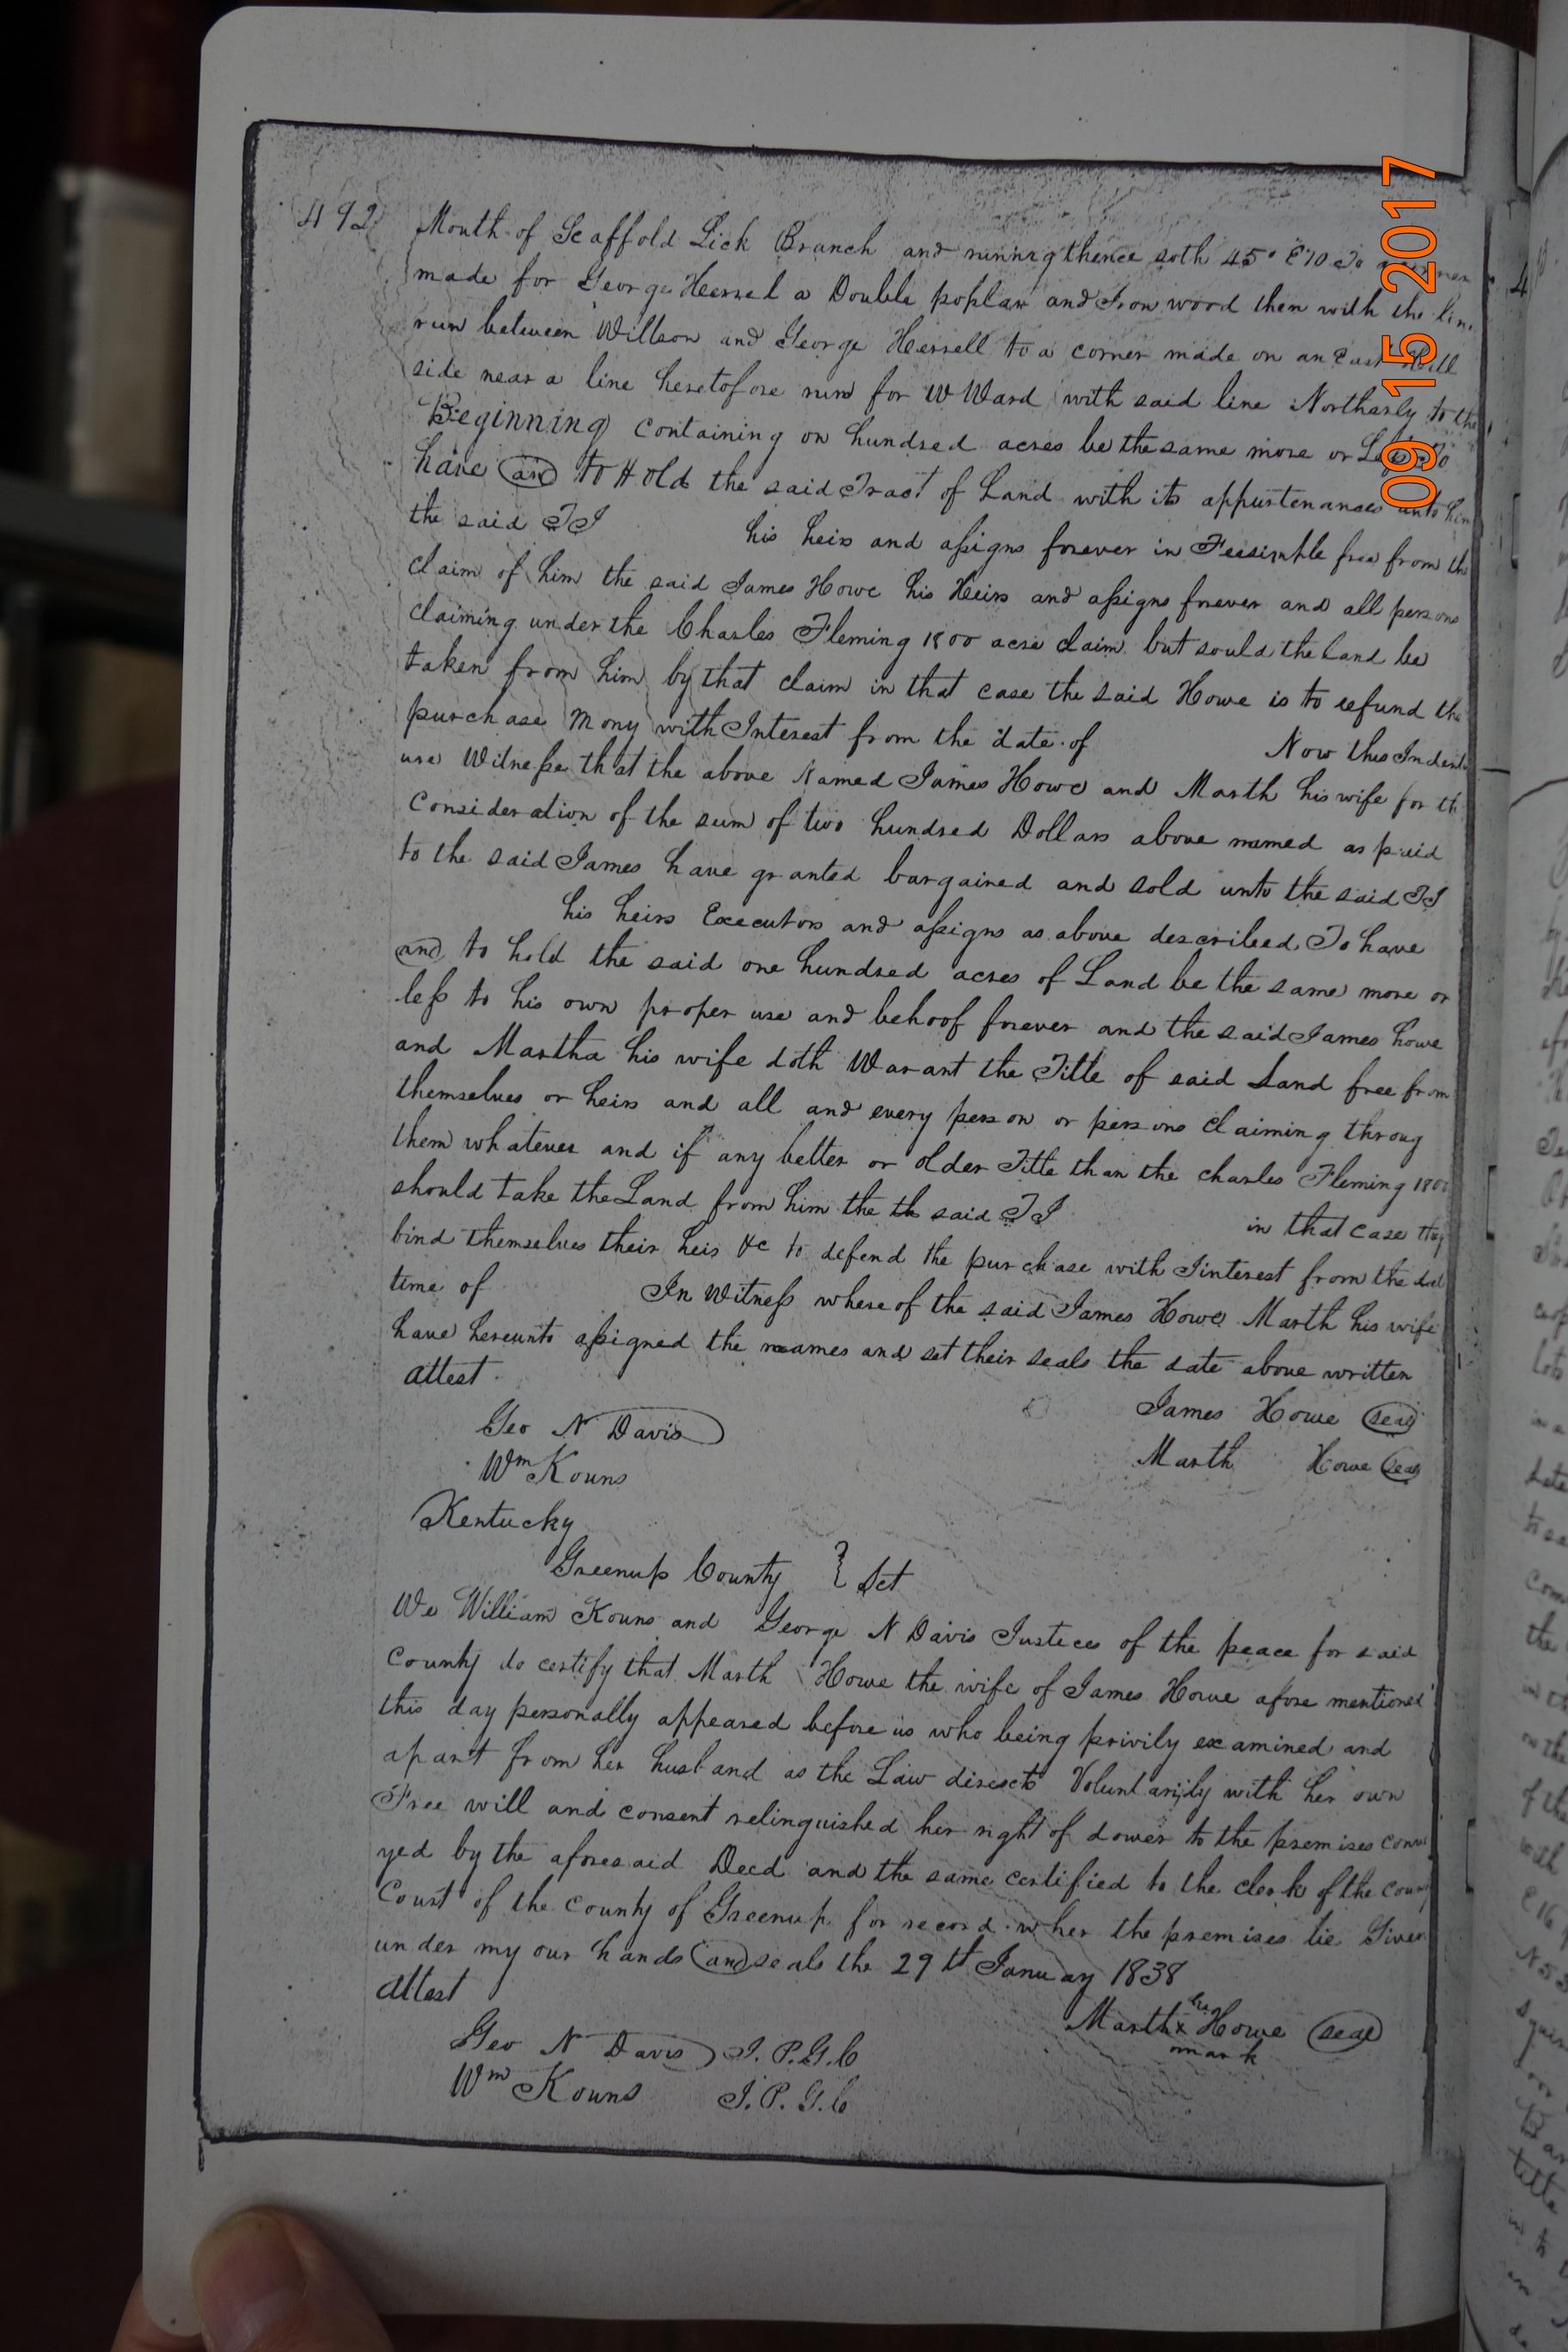 492
Mouth of Scaffold Lick Branch and runnig thence soth 45° E 70 To a corner
made for George Hersel a Double poplar and Iron wood then with the line
run between Willson and George Hersell to a corner made on an East Hill
side near a line heretofore run for W Ward with said line Northarly to the
Beginning containing on hundred acres be the same more or Less To
have and to Hold the said Tract of Land with its appurtenances unto him
the said TJ his heirs and assigns forever in Feesimple free from the
claim of him the said James Howe his Heirs and assigns forever and all persons
claiming under the Charles Fleming 1800 acre claim but sould the Land be
taken from him by that claim in that case the said Howe is to refund the
purchase Mony with Interest from the date of Now this Indent
ure Witnesse that the above Named James Howe and Marth his wife for th
Consideration of the sum of two hundred Dollars above named as paid
to the said James have granted bargained and sold unto the said TJ
his heirs Executors and assigns as above described To have
and to hold the said one hundred acres of Land be the same more or
less to his own proper use and behoof forever and the said James howe
and Martha his wife doth Warant the Title of said Land free from
themselves or heirs and all and every person or persons claiming throug
them whatever and if any better or older Title than the charles Fleming 1800
should take the Land from him the th said TJ in that case they
bind themselves their heis &c to defend the purchase with Iinterest from the dat
time of In Witness whereof the said James Howe Marth his wife
have hereunto assigned the names and set their seals the date above written
attest
Geo N Davis James Howe seal
Wm Kouns Marth Howe seal
Kentucky
Greenup County } Sct
We William Kouns and George N Davis Justices of the peace for said
County do certify that Marth Howe the wife of James Howe afore mentioned
this day personally appeared before us who being privily examined and
apart from her husband as the Law directs Voluntarily with her own
Free will and consent relinquished her right of dower to the premises conve
yed by the aforesaid Deed and the same certified to the clerk of the county
Court of the county of Greenup for record wher the premises lie Given
under my our hands and seals the 29th January 1838
attest
her
Marth x Howe seal
mark
Geo N Davis J.P.G.C
Wm Kouns J.P.G.C
09 15 2017